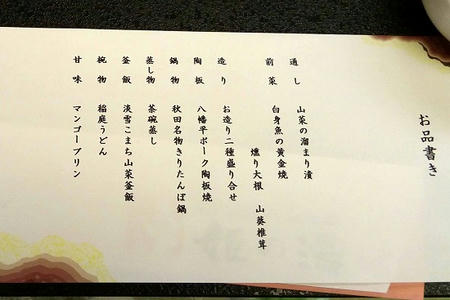 お品書き
通し 山菜の溜まり漬
前菜 白身魚の黄金焼
燻り大根 山葵椎茸
造り お造り二種盛り合せ
陶板 八幡平ポーク陶板焼
鍋物 秋田名物きりたんぽ鍋
蒸し物 茶碗蒸し
釜飯 淡雪こまち山菜釜飯
椀物 稲庭うどん
甘味 マンゴープリン